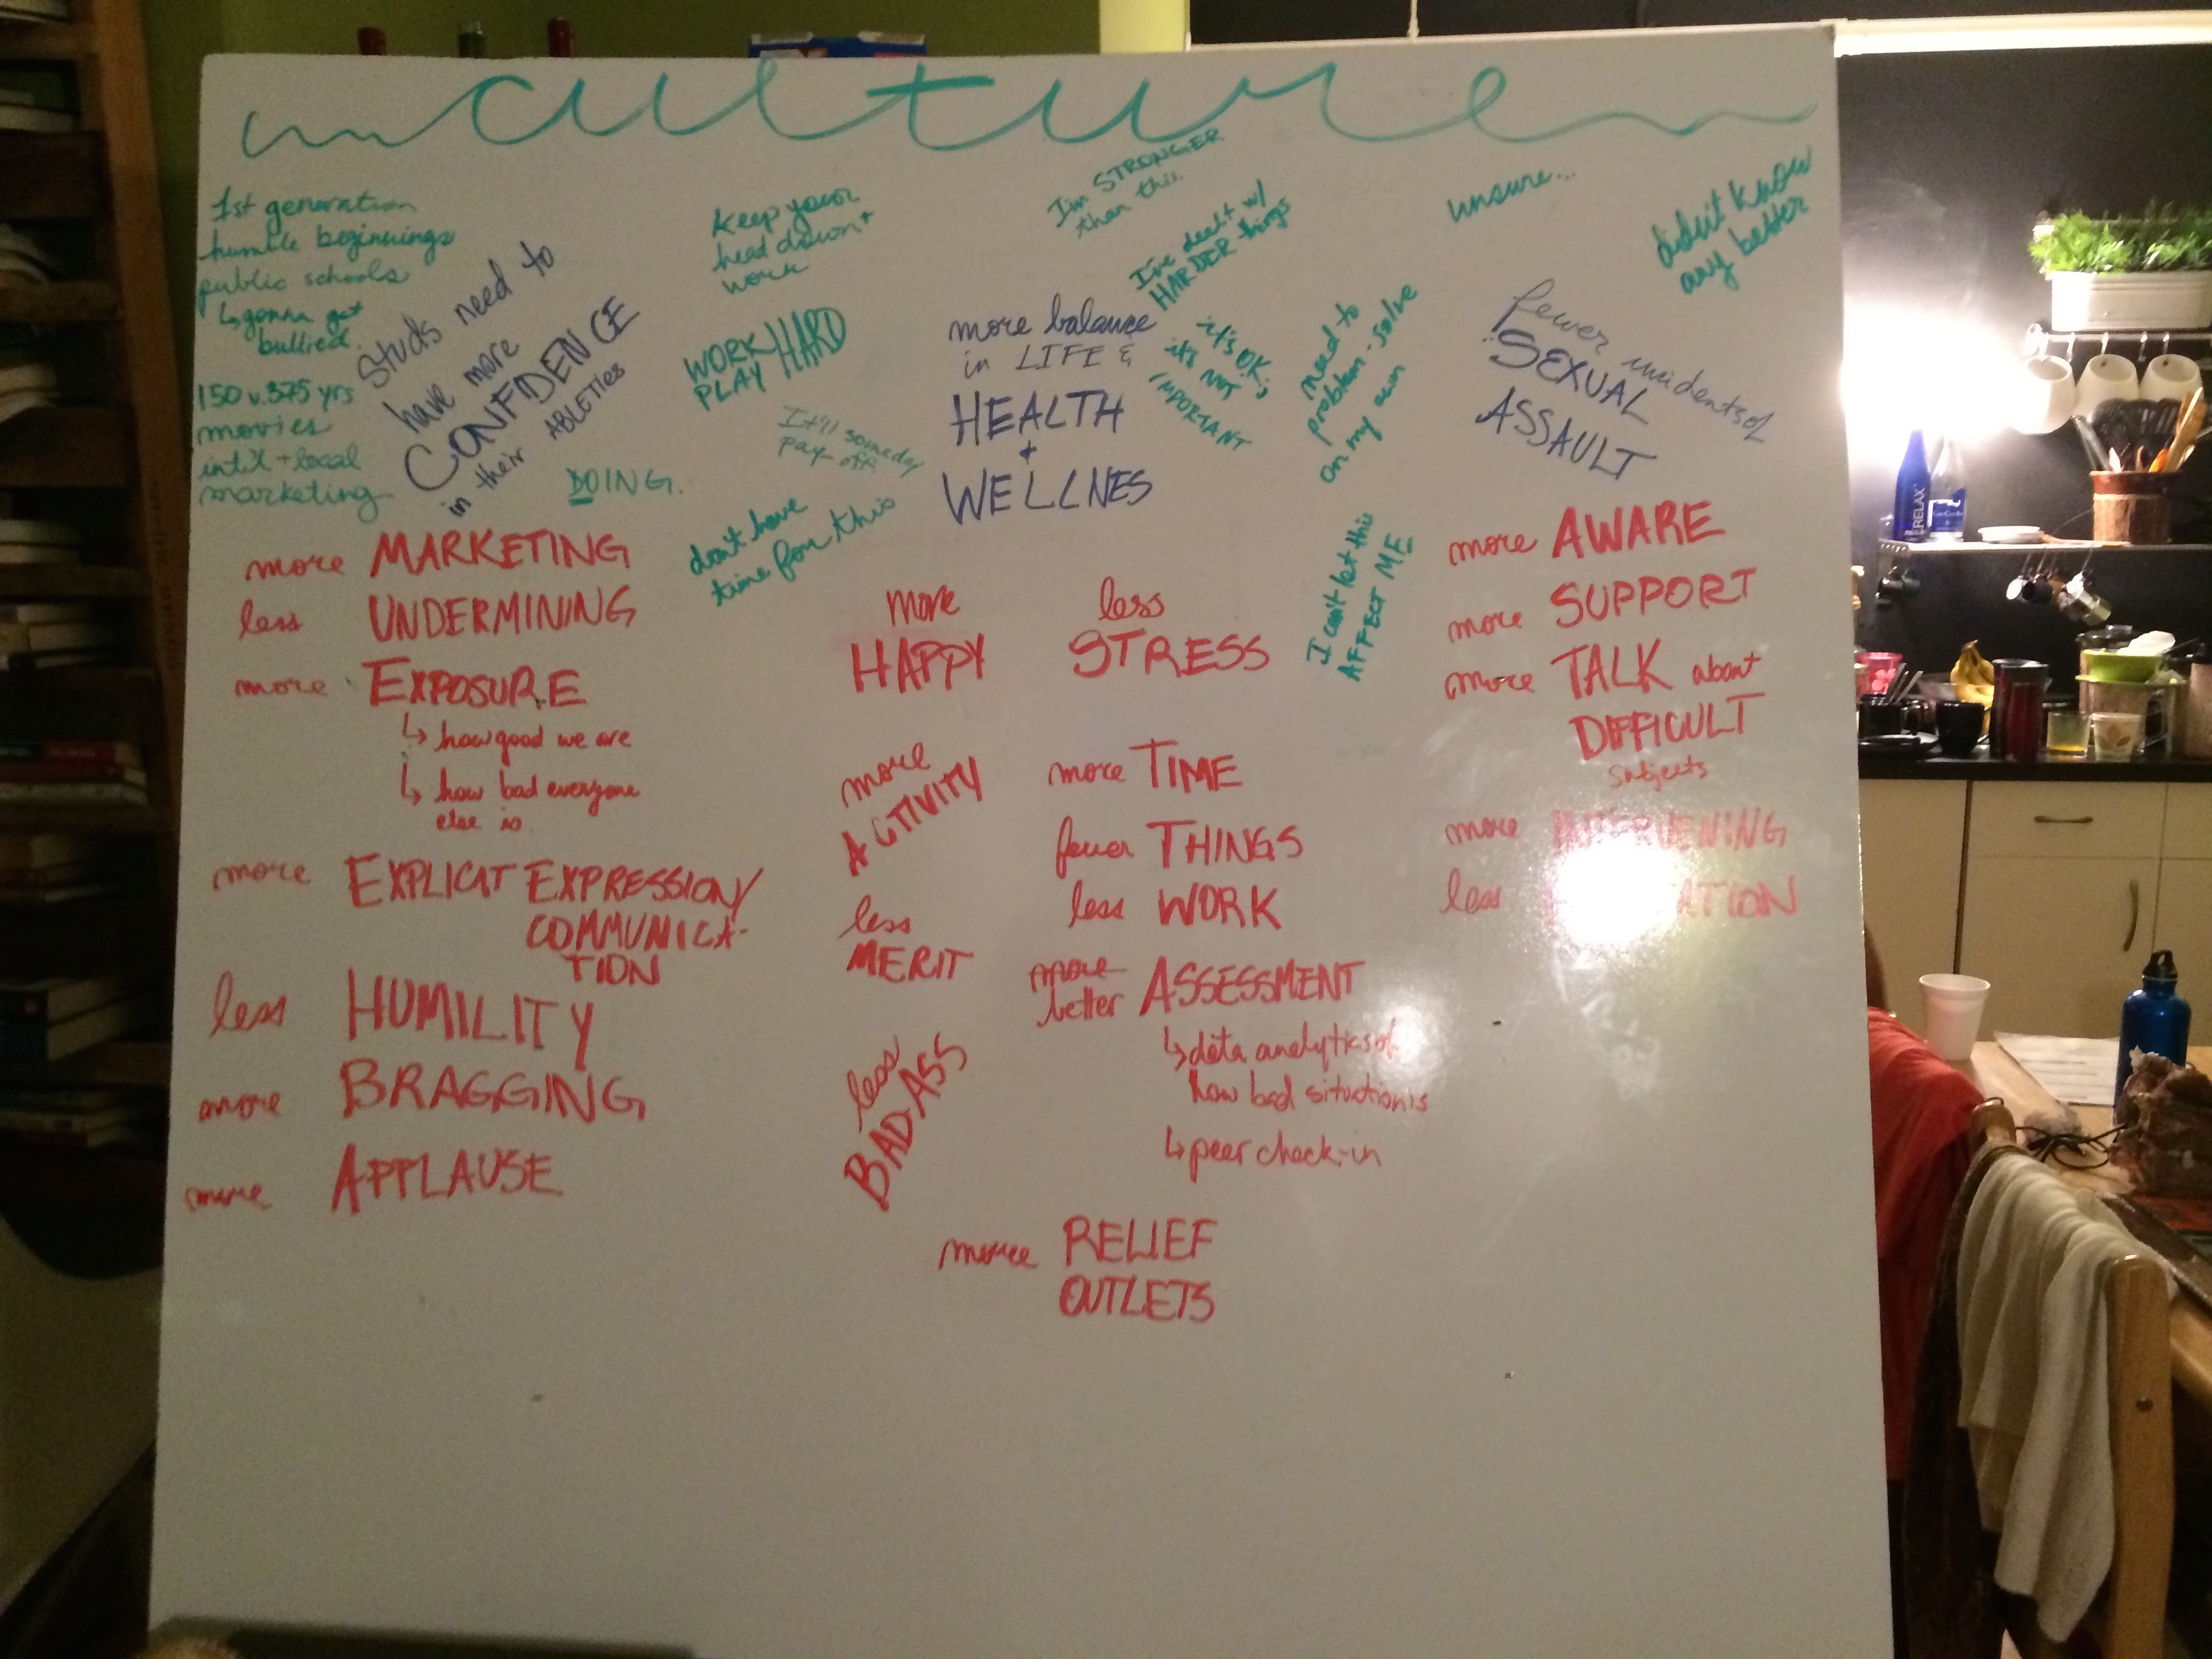 culture
1st generation
humble beginnings
public schools
↳ gonna get
bullied.
150 v. 375 yrs
movies
int'l + local
marketing
Studs need to
have more
CONFIDENCE
in their ABLETIes
DOING.
Keep your
head down +
work
WORK HARD
PLAY
It'll someday
pay-off
don't have
time for this
more balance
in LIFE &
HEALTH
+
WELLNES
I'm STRONGER
than this
I've dealt w/
HARDER things
it's OK;
it's NOT
IMPORTANT
need to
problem-solve
on my own
I can't let this
AFFECT ME
unsure...
didn't know
any better
fewer incidents of
SEXUAL
ASSAULT
more MARKETING
less UNDERMINING
more EXPOSURE
↳ how good we are
↳ how bad everyone
else is.
more EXPLICIT EXPRESSION/
COMMUNICA-
TION
less HUMILITY
more BRAGGING
more APPLAUSE
more
HAPPY
less
STRESS
more
ACTIVITY
less
MERIT
less
BADASS
more TIME
fewer THINGS
less WORK
more
better ASSESSMENT
↳ data analytics of
how bad situation is
↳ peer check-in
more RELIEF
OUTLETS
more AWARE
more SUPPORT
more TALK about
DIFFICULT
subjects
more INTERVENING
less
RELAX